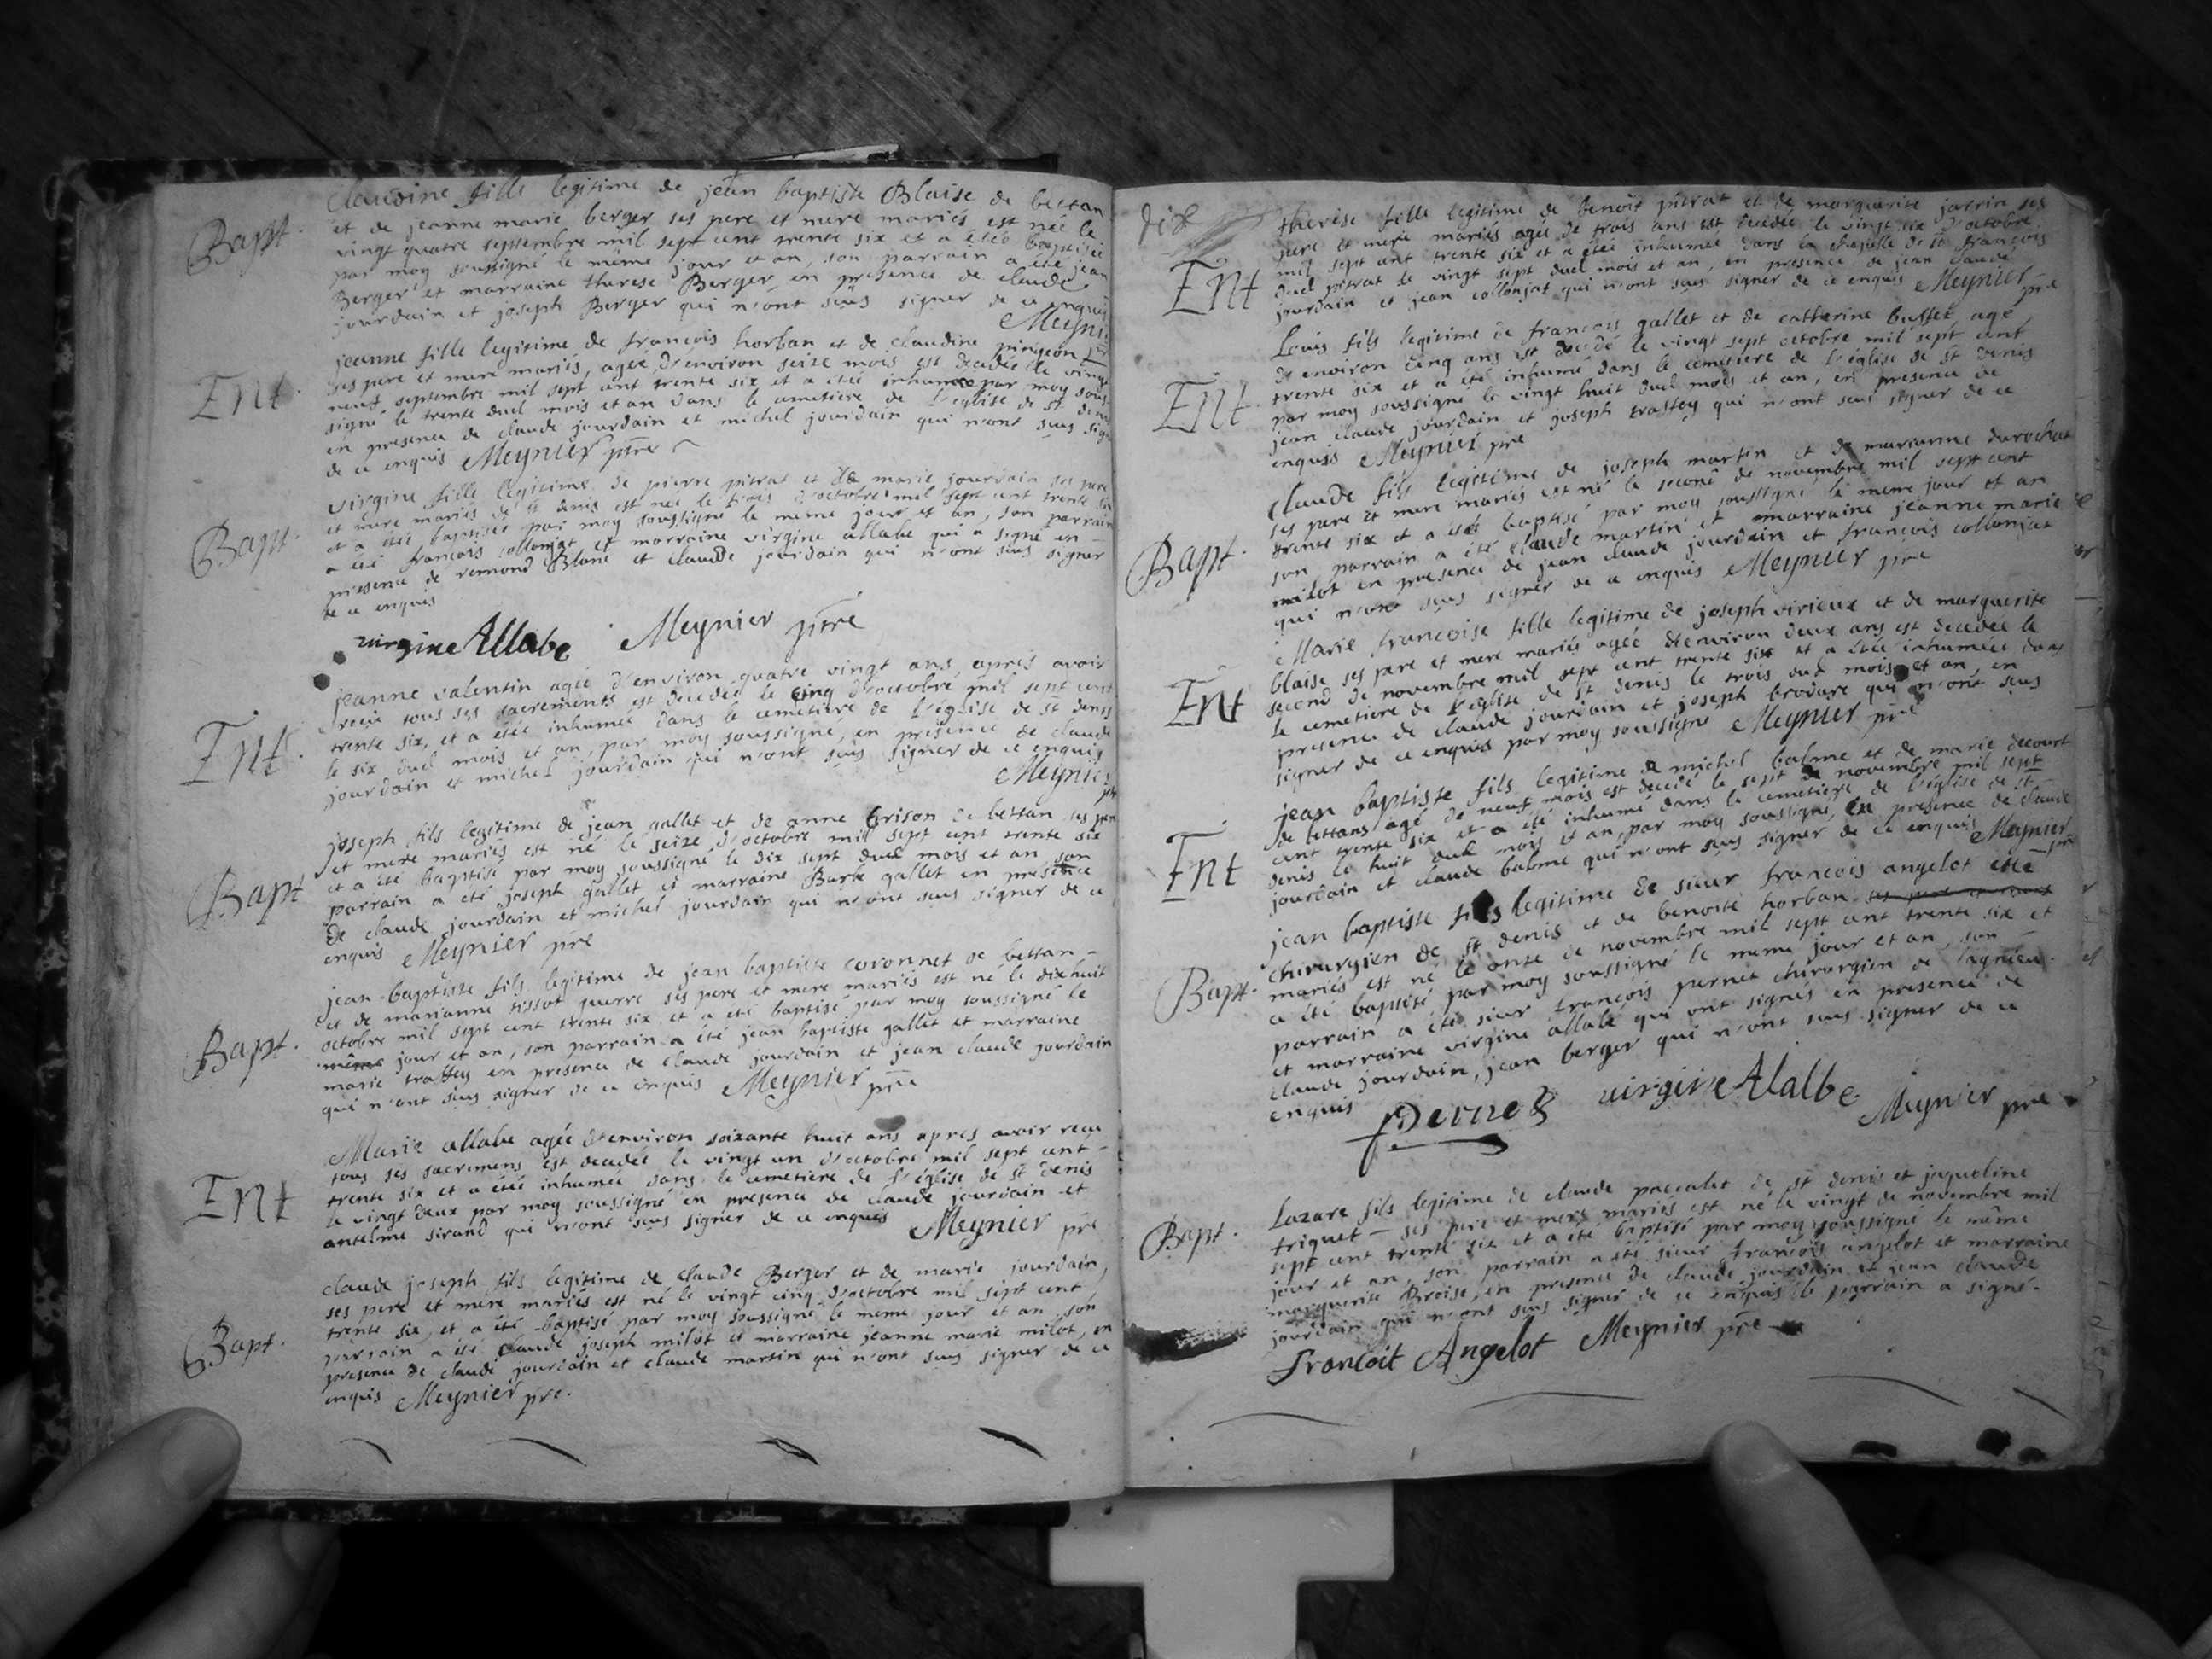 Bapt.
claudine fille legitime de jean baptiste Blaise de bettan
et de jeanne marie berger ses pere et mere mariés est née le
vingt quatre septembre mil sept cent trente six et a étéé baptisée
par moy soussigné le même jour et an, son parrain a été jean
Berger et marraine therese Berger, en presence de claude
jourdain et joseph Berger qui n'ont sçus signer de ce enquis
Meynier
Ent.
jeanne fille legitime de françois horban et de claudine pingeon
ses pere et mere mariés, agéé d'environ seize mois est decedéé le vingt
neuf septembre mil sept cent trente six et a étéé inhumée par moy sous
signé le trente dud mois et an dans le cemetiere de l'église de st denis
en presence de claude jourdain et michel jourdain qui n'ont sçus sign
de ce enquis Meynier ptre
Bapt.
virgine fille legitime de pierre pitrat et de marie jourdain ses pere
et mere mariés de st denis est née le trois d'octobre mil sept cent trente six
et a étéé baptisée par moy soussigné le meme jour et an, son parrain
a été françois collonjat et marraine virgine allabe qui a signé en
presence de remond Blanc et claude jourdain qui n'ont sçus signer
de ce enquis
virgine Allabe Meynier ptre
Ent.
jeanne valentin agéé d'environ quatre vingt ans, aprés avoir
reçu tous ses sacrements est decedéé le cinq d'octobre mil sept cent
trente six, et a étéé inhumée dans le cemetiere de l'église de st denis
le six dud mois et an, par moy soussigné, en presence de claude
jourdain et michel jourdain qui n'ont sçus signer de ce enquis
Meynier
ptre
Bapt
joseph fils legitime de jean gallet et de anne brison de bettan ses pere
et mere mariés est né le seize d'octobre mil sept cent trente six
et a été baptisé par moy soussigné le dix sept dud mois et an son
parrain a été joseph gallet et marraine Barbe gallet en presence
de claude jourdain et michel jourdain qui n'ont sçus signer de ce
enquis Meynier pre
Bapt.
jean baptiste fils legitime de jean baptiste coronnet de bettan
et de marianne tissot guerre ses pere et mere mariés est né le dixhuit
octobre mil sept cent trente six et a été baptisé par moy soussigné le
même jour et an, son parrain a été jean baptiste gallet et marraine
marie traffey en presence de claude jourdain et jean claude jourdain
qui n'ont sçus signer de ce enquis Meynier pre
Ent
Marie allabe agéé d'environ soixante huit ans apres avoir reçu
tous ses sacremens est decedéé le vingt un d'octobre mil sept cent
trente six et a étéé inhumée dans le cemetiere de l'église de st denis
le vingt deux par moy soussigné en presence de claude jourdain et
antelme sirand qui n'ont sçus signer de ce enquis Meynier pre
Bapt.
claude joseph fils legitime de claude Berger et de marie jourdain,
ses pere et mere mariés est né le vingt cinq d'octobre mil sept cent
trente six, et a été baptisé par moy soussigné le meme jour et an son
parrain a été claude joseph milot et marraine jeanne marie milot, en
presence de claude jourdain et claude martin qui n'ont sçus signer de ce
enquis Meynier pre.
dix
Ent
therese fille legitime de benoit pitrat et de marguerite jarrin ses
pere et mere mariés agéé de trois ans est decedéé le vingt six d'octobre
mil sept cent trente six et a étéé inhumée dans la chapelle de st françois
dud pitrat le vingt sept dud mois et an, en presence de jean claude
jourdain et jean collonjat qui n'ont sçus signer de ce enquis Meynier pre
Ent.
Louis fils legitime de françois gallet et de catherine buffet agé
d'environ cinq ans est decedé le vingt sept octobre mil sept cent
trente six et a été inhumé dans le cemetiere de l'église de st denis
par moy soussigné le vingt huit dud mois et an, en presence de
jean claude jourdain et joseph traffey qui n'ont sçus signer de ce
enquis Meynier pre
Bapt.
claude fils legitime de joseph martin et de marianne durochat
ses pere et mere mariés est né le second de novembre mil sept cent
trente six et a été baptisé par moy soussigné le meme jour et an
son parrain a été claude martin et marraine jeanne marie
milot en presence de jean claude jourdain et françois collonjat
qui n'ont sçus signer de ce enquis Meynier pre
Ent
Marie françoise fille legitime de joseph virieux et de marguerite
blaise ses pere et mere mariés agéé d'environ deux ans est decedéé le
second de novembre mil sept cent trente six et a étéé inhumée dans
le cemetiere de l'église de st denis le trois dud mois et an, en
presence de claude jourdain et joseph brodare qui n'ont sçus
signer de ce enquis par moy soussigné Meynier pre
Ent
jean baptiste fils legitime de michel balme et de marie decourt
de bettans agé de neuf mois est decedé le sept de novembre mil sept
cent trente six et a été inhumé dans le cemetiere de l'église de st
denis le huit dud mois et an, par moy soussigné, en presence de claude
jourdain et claude balme qui n'ont sçus signer de ce enquis Meynier pre
Bapt.
jean baptiste fils legitime de sieur françois angelot
chirurgien de st denis et de benoite horban ses pere et mere
mariés est né le onze de novembre mil sept cent trente six et
a été baptisé par moy soussigné le meme jour et an, son
parrain a été sieur françois pernet chirurgien de lagnieu
et marraine virgine allabe qui ont signés en presence de
claude jourdain, jean berger qui n'ont sçus signer de ce
enquis
Pernet virgine Alalbe Meynier pre
Bapt.
Lazare fils legitime de claude de st denis et jaqueline
triquet ses pere et mere mariés est né le vingt de novembre mil
sept cent trente six et a été baptisé par moy soussigné le même
jour et an, son parrain a été sieur françois angelot et marraine
marguerite Broise, en presence de claude jourdain et jean claude
jourdain qui n'ont sçus signer de ce enquis le parrain a signé.
Francoit Angelot Meynier pre